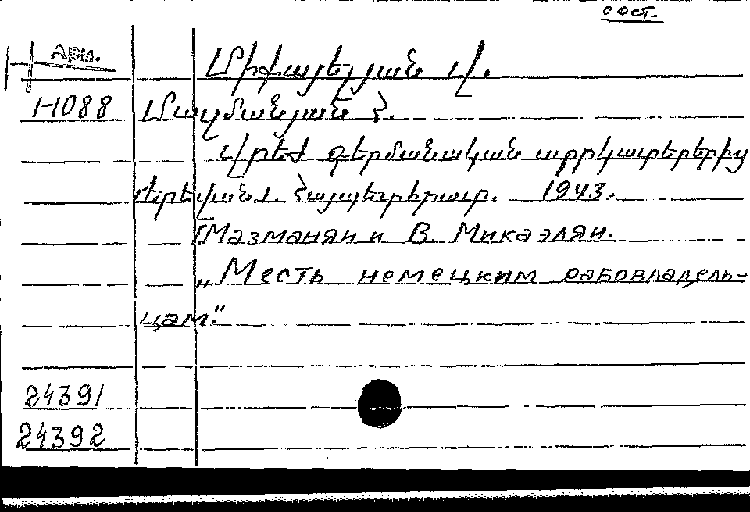 сост.
Арм.
Միքայելյան Վ.
1-1088 Մազմանյան Հ.
Վրեժ գերմանական ստրկատերերից
Երեվան. Հայպետհրատ. 1943.
[Мазманян и В. Микаэлян.
„Месть немецким рабовладель-
цам".
24391
24392